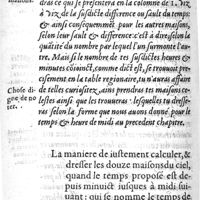 dras ce qui se presentera en la colonne de 1. 'Viz
à 'Viz de la susdicte difference ou sault du temps:
& ainsi consequemmēt pour les autres maisons,
selon leur sault & difference: c'est à dire selon la
quātité du nombre par lequel l'un surmonte l'au-
tre. Mais si le nombre de tes susdictes heures &
minutes coioinct, comme dict est, se trouve preci-
sement en ta table regionaire, tu n'auras affaire
Chose di- de telles curiositez, ains prendras tes maisons ce-
gne de no lestes ainsi que les trouveras : lesquelles tu dresse-
ter. ras selon la forme que nous avons donnée pour le
temps & heure de midi au precedent chapitre.
La maniere de iustement calculer, &
dresser les douze maisons du ciel,
quand le temps proposé est de-
puis minuict iusques à midi sui-
vant ; qui se nomme le temps de